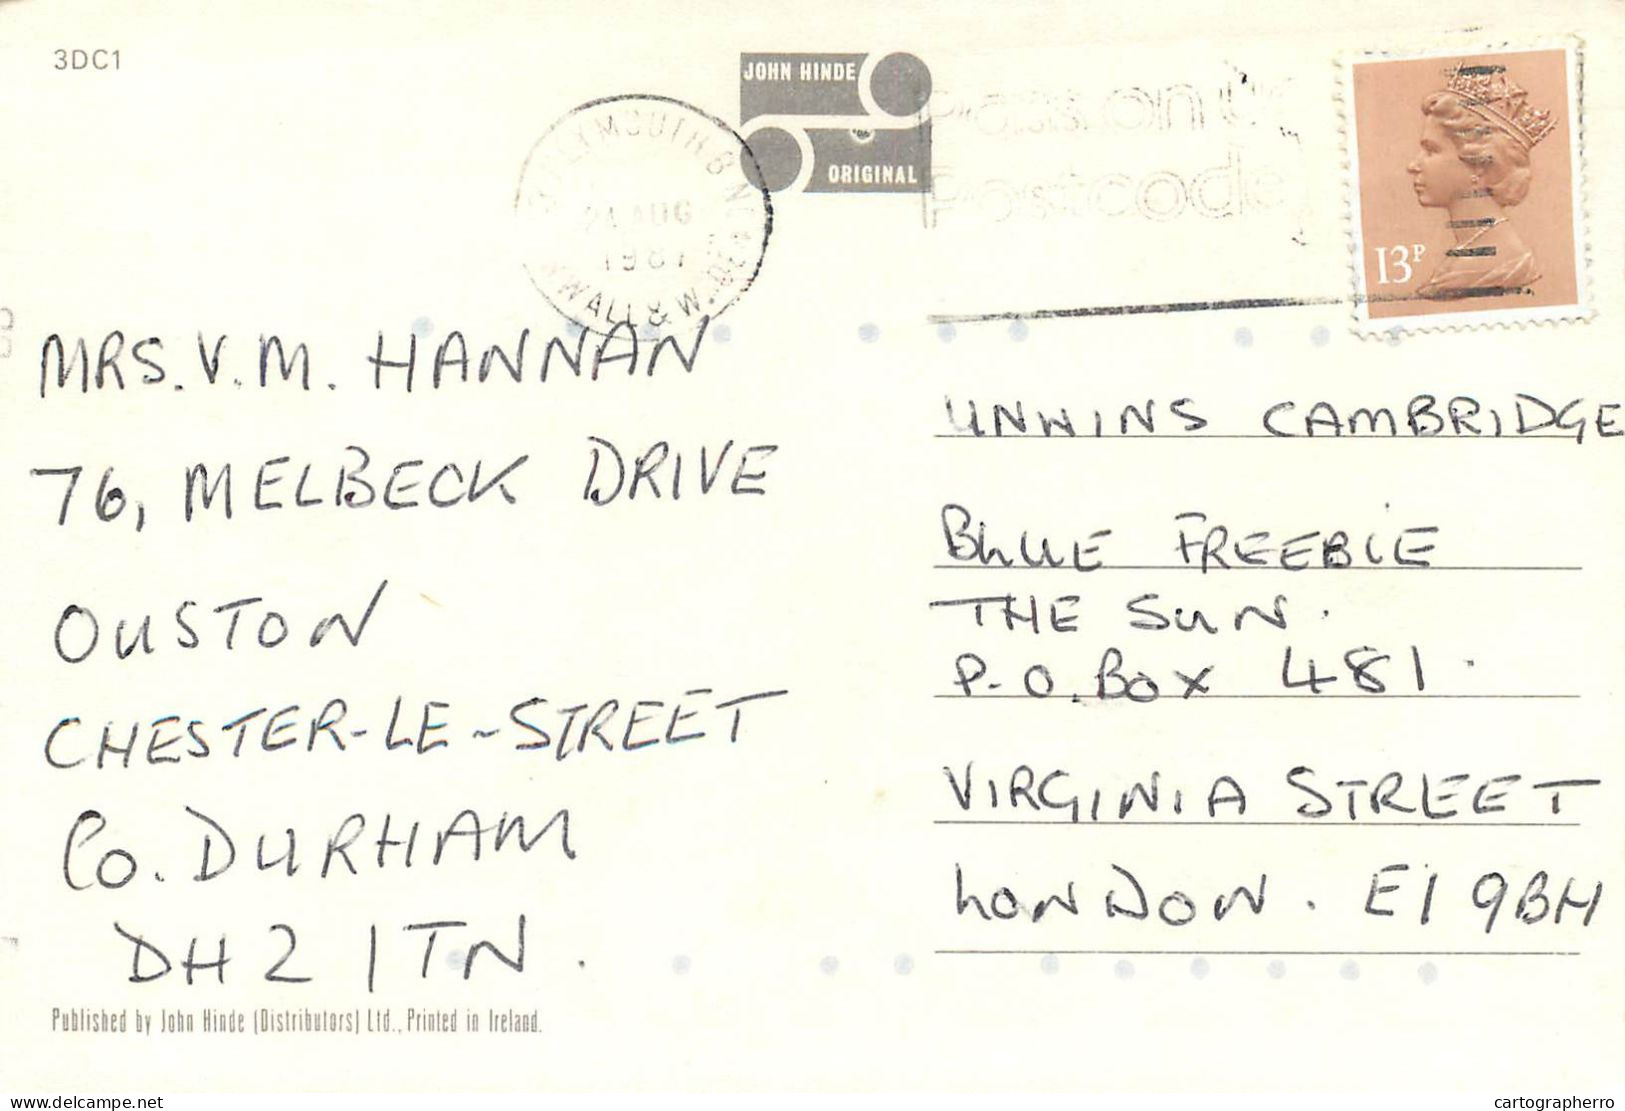 3DC1
JOHN HINDE
ORIGINAL
PLYMOUTH &
24 AUG
WALL & W.
Postcode
13P
MRS. V. M. HANNAN
76, MELBECK DRIVE
OUSTON
CHESTER-LE-STREET
Co. DURHAM
DH2 1TN.
UNWINS CAMBRIDGE
BLUE FREEBIE
THE SUN.
P.O. BOX 481.
VIRGINIA STREET
LONDON. E1 9BH
Published by John Hinde (Distributors) Ltd., Printed in Ireland.
delcampe.net
cartographerro